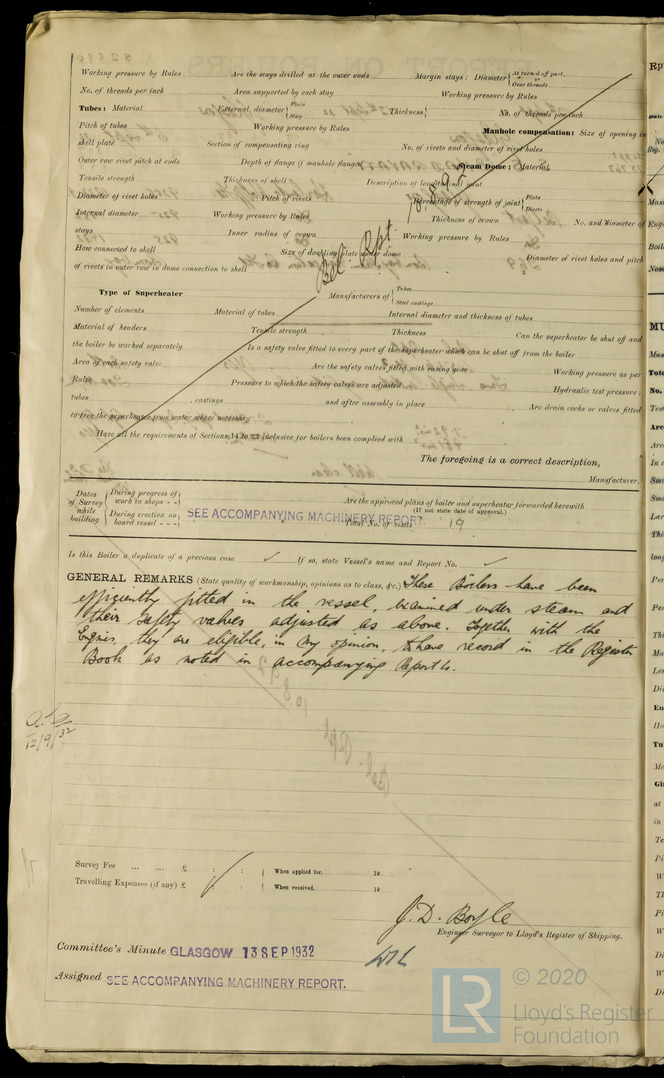 Working pressure by Rules Are the stays drilled at the outer ends Margin stays: Diameter { At turned off part, or Over threads
No. of threads per inch Area supported by each stay Working pressure by Rules
Tubes: Material External diameter { Plain Stay Thickness { No. of threads per inch
Pitch of tubes Working pressure by Rules Manhole compensation: Size of opening in
shell plate Section of compensating ring No. of rivets and diameter of rivet holes
Outer row rivet pitch at ends Depth of flange if manhole flanged Steam Dome: Material
Tensile strength Thickness of shell Description of longitudinal joint
Diameter of rivet holes Pitch of rivets Percentage of strength of joint { Plate Rivets
Internal diameter Working pressure by Rules Thickness of crown No. and diameter of
stays Inner radius of crown Working pressure by Rules
How connected to shell Size of doubling plate under dome Diameter of rivet holes and pitch
of rivets in outer row in dome connection to shell
Bel. Rpt 10.8.92
Type of Superheater Manufacturers of { Tubes Steel castings
Number of elements Material of tubes Internal diameter and thickness of tubes
Material of headers Tensile strength Thickness Can the superheater be shut off and
the boiler be worked separately Is a safety valve fitted to every part of the superheater which can be shut off from the boiler
Area of each safety valve Are the safety valves fitted with easing gear Working pressure as per
Rules Pressure to which the safety valves are adjusted Hydraulic test pressure:
tubes castings and after assembly in place Are drain cocks or valves fitted
to free the superheater from water where necessary
Have all the requirements of Sections 14 to 22 inclusive for boilers been complied with
The foregoing is a correct description,
Manufacturer.
Dates of Survey while building { During progress of work in shops - - Are the approved plans of boiler and superheater forwarded herewith (If not state date of approval.)
During erection on board vessel - - - SEE ACCOMPANYING MACHINERY REPORT. Total No. of visits 19
Is this Boiler a duplicate of a previous case ✓ If so, state Vessel's name and Report No. ✓
GENERAL REMARKS (State quality of workmanship, opinions as to class, &c.) These Boilers have been
efficiently fitted in the vessel, examined under steam and
their safety valves adjusted as above. Together with the
Engines, they are eligible, in my opinion, to have record in the Register
Book as noted in accompanying Report 4.
12/9/32
Survey Fee ... ... £ : : When applied for, 19
Travelling Expenses (if any) £ : : When received, 19
J. D. Boyle
Engineer Surveyor to Lloyd's Register of Shipping.
Committee's Minute GLASGOW 13 SEP 1932
Assigned SEE ACCOMPANYING MACHINERY REPORT.
LR © 2020 Lloyd's Register Foundation